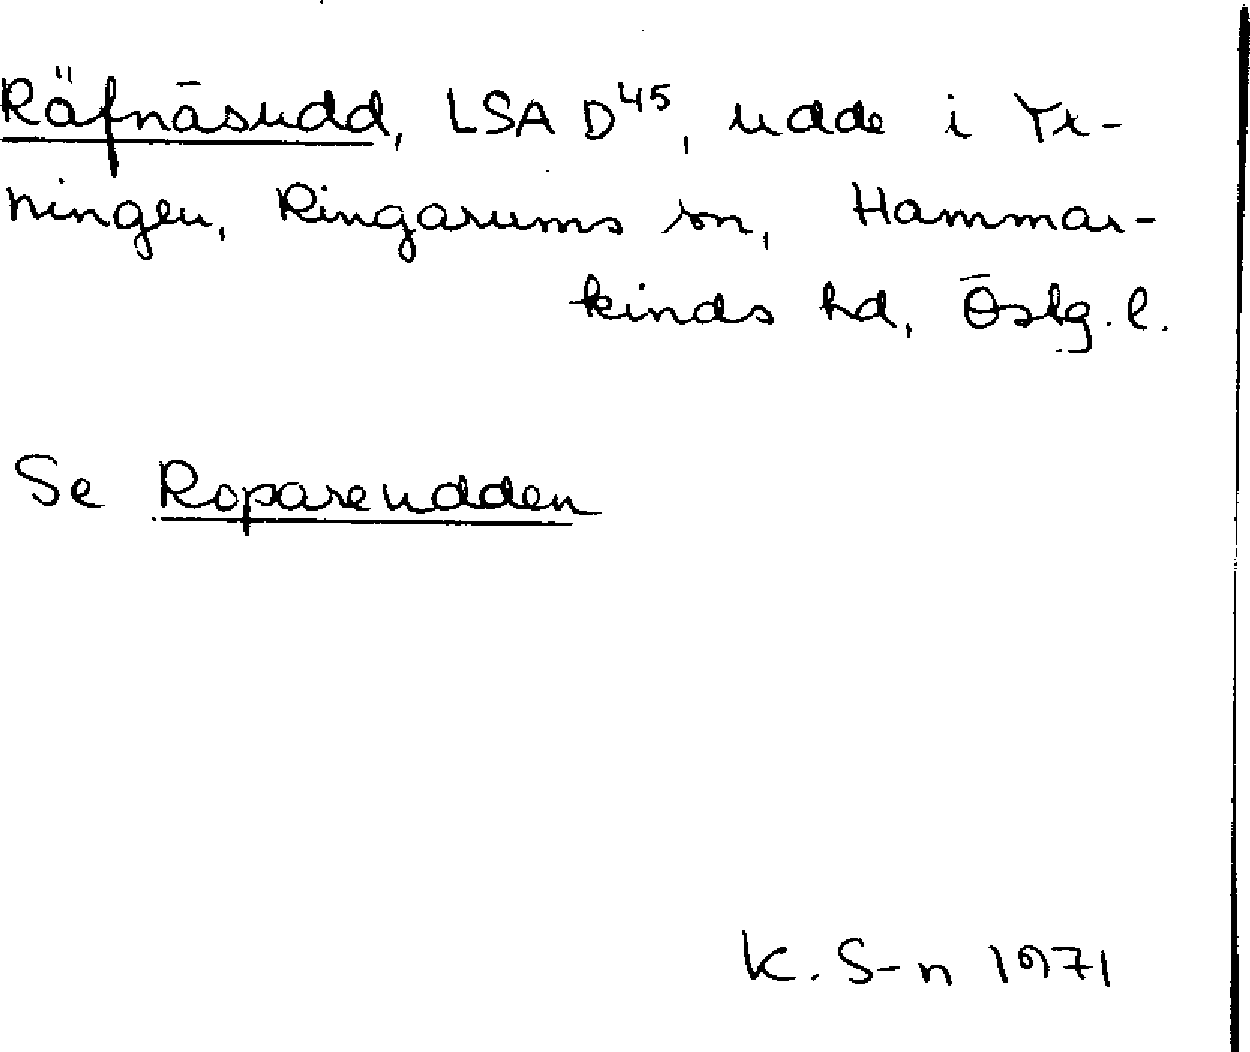 Räfnäsudd, LSA D⁴⁵, udde i Yr-
ningen, Ringarums sn, Hammar-
kinds hd, Östg. l.
Se Ropareudden
K. S-n 1971